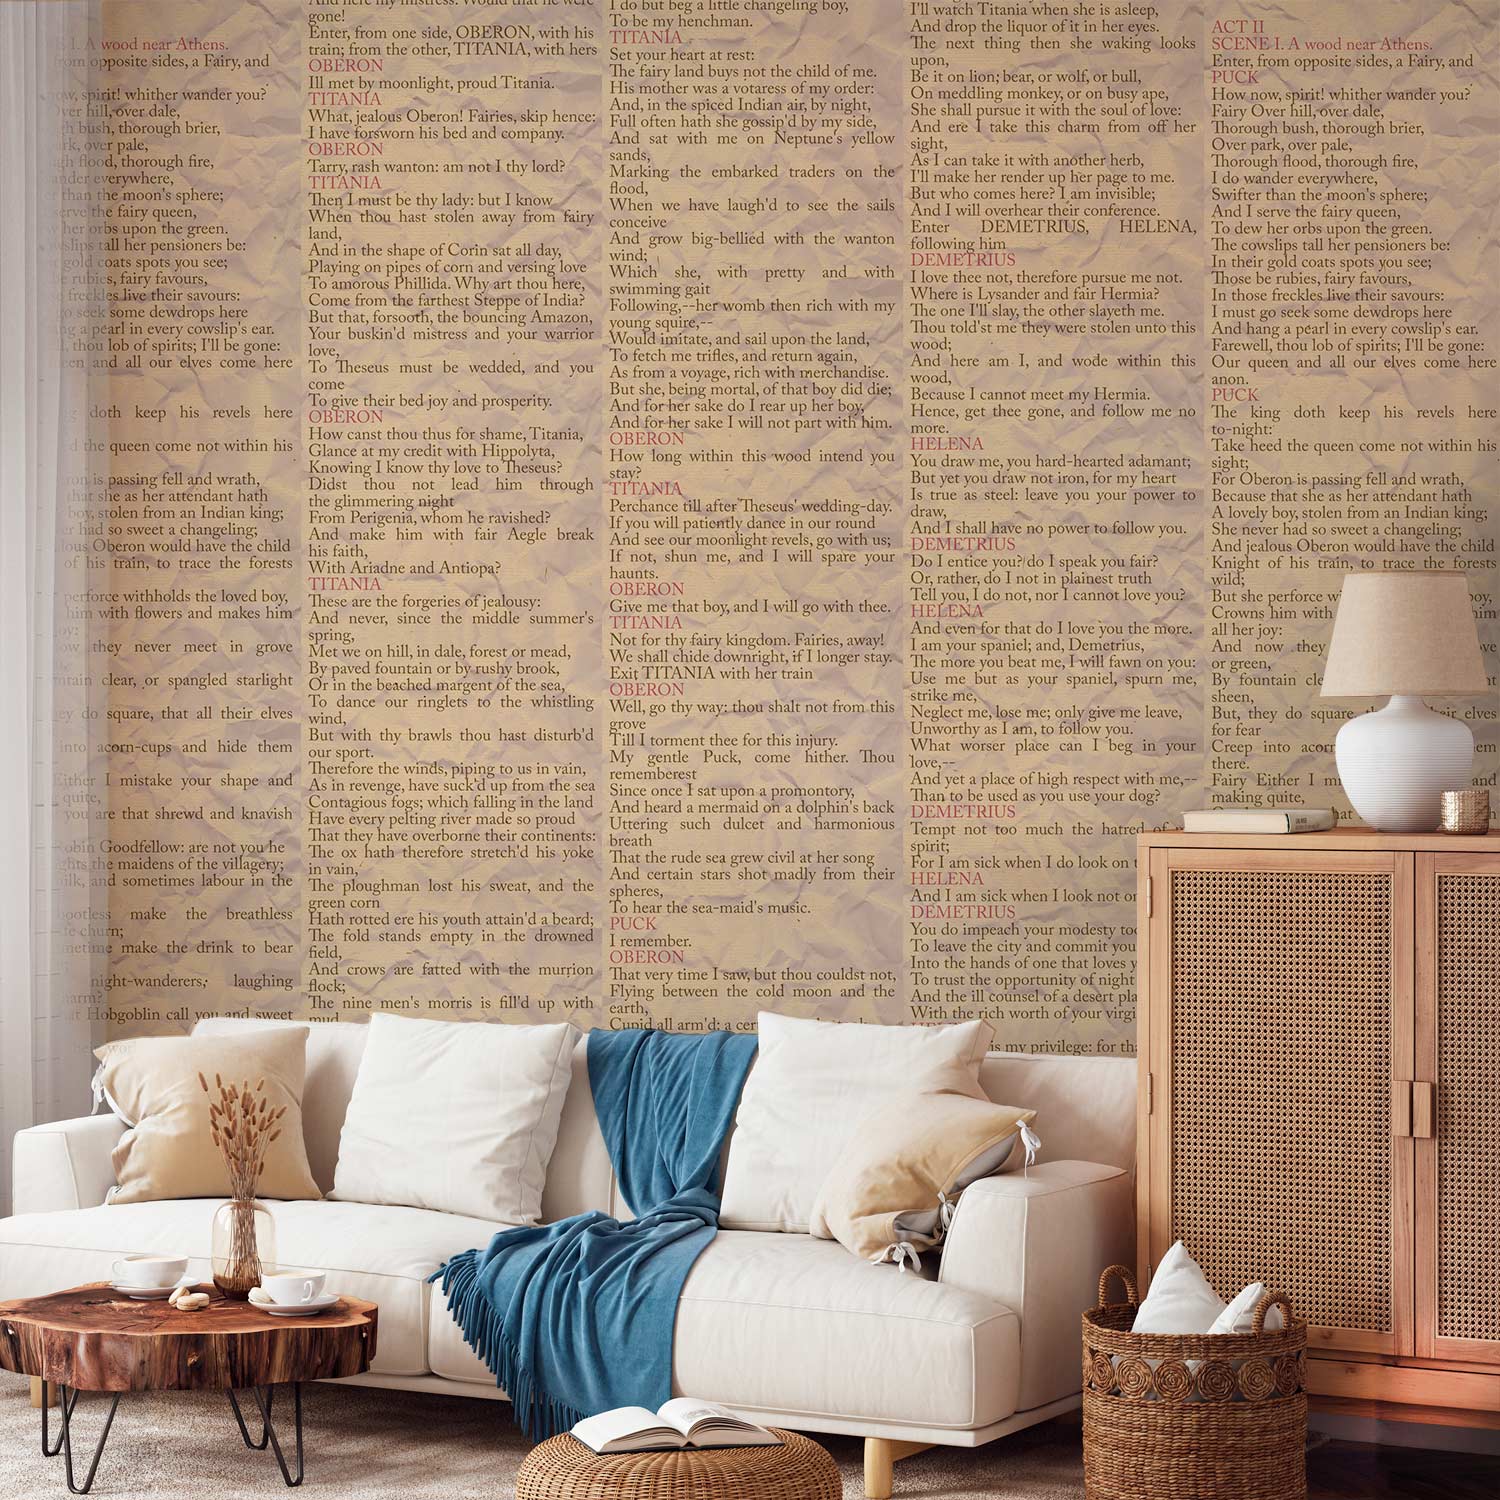 S I. A wood near Athens.
from opposite sides, a Fairy, and
now, spirit! whither wander you?
over hill, over dale,
bush, thorough brier,
park, over pale,
flood, thorough fire,
wander everywhere,
than the moon's sphere;
serve the fairy queen,
her orbs upon the green.
cowslips tall her pensioners be:
gold coats spots you see;
be rubies, fairy favours,
freckles live their savours:
go seek some dewdrops here
hang a pearl in every cowslip's ear.
thou lob of spirits; I'll be gone:
queen and all our elves come here
doth keep his revels here
the queen come not within his
is passing fell and wrath,
that she as her attendant hath
boy, stolen from an Indian king;
had so sweet a changeling;
jealous Oberon would have the child
of his train, to trace the forests
perforce withholds the loved boy,
him with flowers and makes him
joy:
they never meet in grove
clear, or spangled starlight
they do square, that all their elves
into acorn-cups and hide them
Either I mistake your shape and
quite,
you are that shrewd and knavish
Robin Goodfellow: are not you he
the maidens of the villagery;
milk, and sometimes labour in the
bootless make the breathless
churn;
sometime make the drink to bear
night-wanderers, laughing
harm?
Hobgoblin call you and sweet
And here my mistress. Would that he were
gone!
Enter, from one side, OBERON, with his
train; from the other, TITANIA, with hers
OBERON
Ill met by moonlight, proud Titania.
TITANIA
What, jealous Oberon! Fairies, skip hence:
I have forsworn his bed and company.
OBERON
Tarry, rash wanton: am not I thy lord?
TITANIA
Then I must be thy lady: but I know
When thou hast stolen away from fairy
land,
And in the shape of Corin sat all day,
Playing on pipes of corn and versing love
To amorous Phillida. Why art thou here,
Come from the farthest Steppe of India?
But that, forsooth, the bouncing Amazon,
Your buskin'd mistress and your warrior
love,
To Theseus must be wedded, and you
come
To give their bed joy and prosperity.
OBERON
How canst thou thus for shame, Titania,
Glance at my credit with Hippolyta,
Knowing I know thy love to Theseus?
Didst thou not lead him through
the glimmering night
From Perigenia, whom he ravished?
And make him with fair Aegle break
his faith,
With Ariadne and Antiopa?
TITANIA
These are the forgeries of jealousy:
And never, since the middle summer's
spring,
Met we on hill, in dale, forest or mead,
By paved fountain or by rushy brook,
Or in the beached margent of the sea,
To dance our ringlets to the whistling
wind,
But with thy brawls thou hast disturb'd
our sport.
Therefore the winds, piping to us in vain,
As in revenge, have suck'd up from the sea
Contagious fogs; which falling in the land
Have every pelting river made so proud
That they have overborne their continents:
The ox hath therefore stretch'd his yoke
in vain,
The ploughman lost his sweat, and the
green corn
Hath rotted ere his youth attain'd a beard;
The fold stands empty in the drowned
field,
And crows are fatted with the murrion
flock;
The nine men's morris is fill'd up with
mud,
I do but beg a little changeling boy,
To be my henchman.
TITANIA
Set your heart at rest:
The fairy land buys not the child of me.
His mother was a votaress of my order:
And, in the spiced Indian air, by night,
Full often hath she gossip'd by my side,
And sat with me on Neptune's yellow
sands,
Marking the embarked traders on the
flood,
When we have laugh'd to see the sails
conceive
And grow big-bellied with the wanton
wind;
Which she, with pretty and with
swimming gait
Following,--her womb then rich with my
young squire,--
Would imitate, and sail upon the land,
To fetch me trifles, and return again,
As from a voyage, rich with merchandise.
But she, being mortal, of that boy did die;
And for her sake do I rear up her boy,
And for her sake I will not part with him.
OBERON
How long within this wood intend you
stay?
TITANIA
Perchance till after Theseus' wedding-day.
If you will patiently dance in our round
And see our moonlight revels, go with us;
If not, shun me, and I will spare your
haunts.
OBERON
Give me that boy, and I will go with thee.
TITANIA
Not for thy fairy kingdom. Fairies, away!
We shall chide downright, if I longer stay.
Exit TITANIA with her train
OBERON
Well, go thy way: thou shalt not from this
grove
Till I torment thee for this injury.
My gentle Puck, come hither. Thou
rememberest
Since once I sat upon a promontory,
And heard a mermaid on a dolphin's back
Uttering such dulcet and harmonious
breath
That the rude sea grew civil at her song
And certain stars shot madly from their
spheres,
To hear the sea-maid's music.
PUCK
I remember.
OBERON
That very time I saw, but thou couldst not,
Flying between the cold moon and the
earth,
Cupid all arm'd: a cer
I'll watch Titania when she is asleep,
And drop the liquor of it in her eyes.
The next thing then she waking looks
upon,
Be it on lion; bear, or wolf, or bull,
On meddling monkey, or on busy ape,
She shall pursue it with the soul of love:
And ere I take this charm from off her
sight,
As I can take it with another herb,
I'll make her render up her page to me.
But who comes here? I am invisible;
And I will overhear their conference.
Enter DEMETRIUS, HELENA,
following him
DEMETRIUS
I love thee not, therefore pursue me not.
Where is Lysander and fair Hermia?
The one I'll slay, the other slayeth me.
Thou told'st me they were stolen unto this
wood;
And here am I, and wode within this
wood,
Because I cannot meet my Hermia.
Hence, get thee gone, and follow me no
more.
HELENA
You draw me, you hard-hearted adamant;
But yet you draw not iron, for my heart
Is true as steel: leave you your power to
draw,
And I shall have no power to follow you.
DEMETRIUS
Do I entice you? do I speak you fair?
Or, rather, do I not in plainest truth
Tell you, I do not, nor I cannot love you?
HELENA
And even for that do I love you the more.
I am your spaniel; and, Demetrius,
The more you beat me, I will fawn on you:
Use me but as your spaniel, spurn me,
strike me,
Neglect me, lose me; only give me leave,
Unworthy as I am, to follow you.
What worser place can I beg in your
love,--
And yet a place of high respect with me,--
Than to be used as you use your dog?
DEMETRIUS
Tempt not too much the hatred of
spirit;
For I am sick when I do look on t
HELENA
And I am sick when I look not on
DEMETRIUS
You do impeach your modesty too
To leave the city and commit you
Into the hands of one that loves y
To trust the opportunity of night
And the ill counsel of a desert pla
With the rich worth of your virgi
is my privilege: for tha
ACT II
SCENE I. A wood near Athens.
Enter, from opposite sides, a Fairy, and
PUCK
How now, spirit! whither wander you?
Fairy Over hill, over dale,
Thorough bush, thorough brier,
Over park, over pale,
Thorough flood, thorough fire,
I do wander everywhere,
Swifter than the moon's sphere;
And I serve the fairy queen,
To dew her orbs upon the green.
The cowslips tall her pensioners be:
In their gold coats spots you see;
Those be rubies, fairy favours,
In those freckles live their savours:
I must go seek some dewdrops here
And hang a pearl in every cowslip's ear.
Farewell, thou lob of spirits; I'll be gone:
Our queen and all our elves come here
anon.
PUCK
The king doth keep his revels here
to-night:
Take heed the queen come not within his
sight;
For Oberon is passing fell and wrath,
Because that she as her attendant hath
A lovely boy, stolen from an Indian king;
She never had so sweet a changeling;
And jealous Oberon would have the child
Knight of his train, to trace the forests
wild;
But she perforce wi boy,
Crowns him with him
all her joy:
And now they ove
or green,
By fountain cle t
sheen,
But, they do square, their elves
for fear
Creep into acorn em
there.
Fairy Either I mi and
making quite,